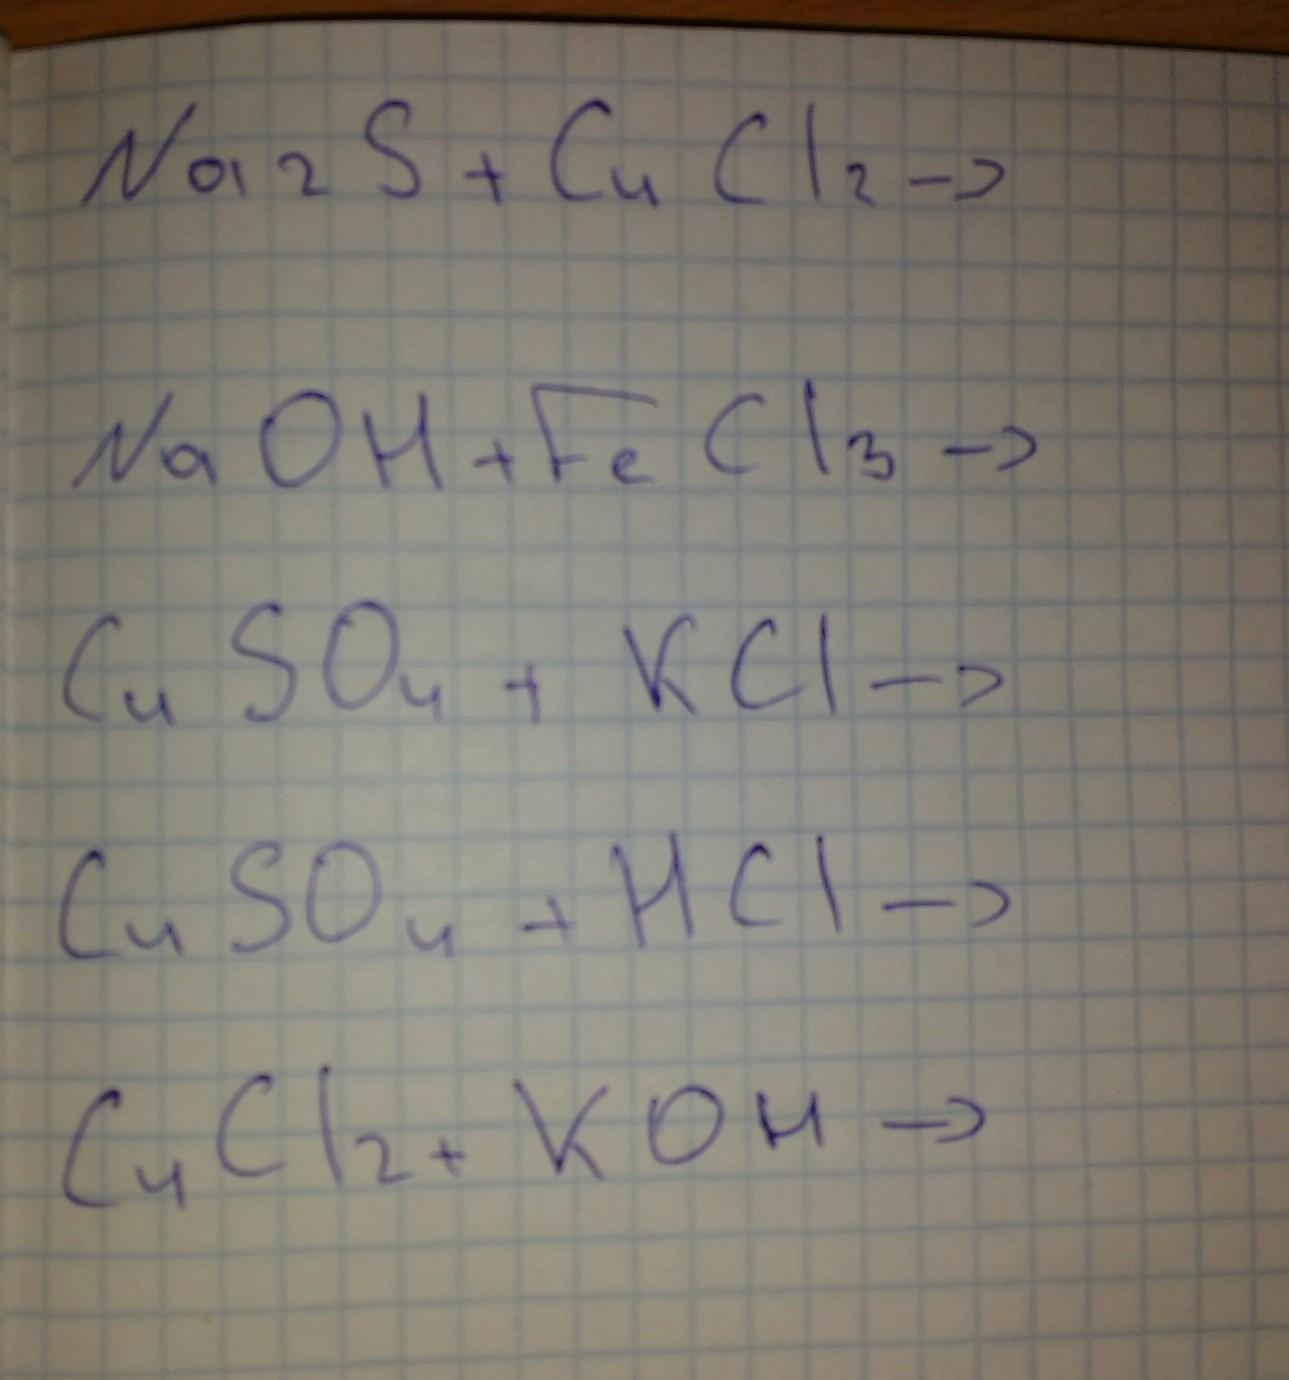 Na2S + CuCl2 ->
NaOH + FeCl3 ->
CuSO4 + KCl ->
CuSO4 + HCl ->
CuCl2 + KOH ->